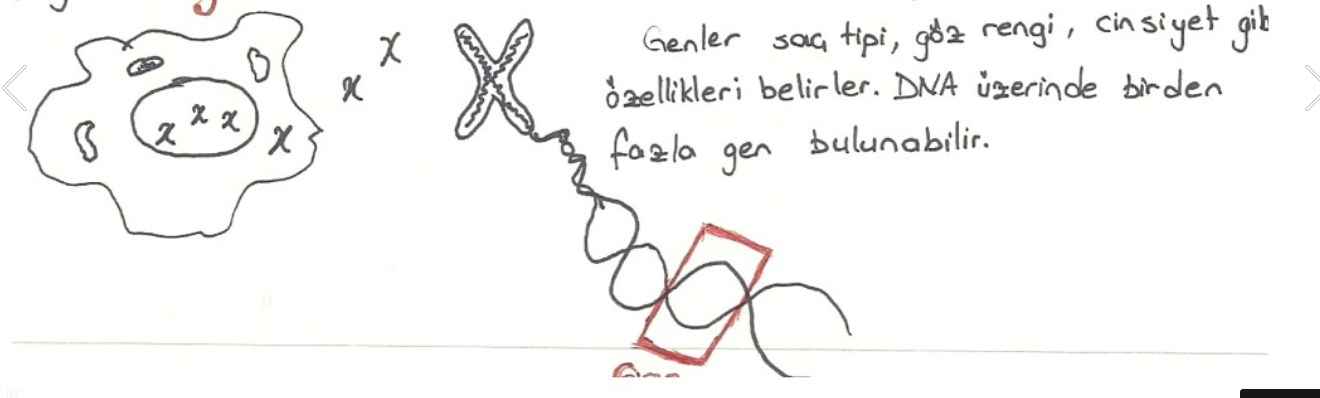 Genler saç tipi, göz rengi, cinsiyet gib
özellikleri belirler. DNA üzerinde birden
fazla gen bulunabilir.